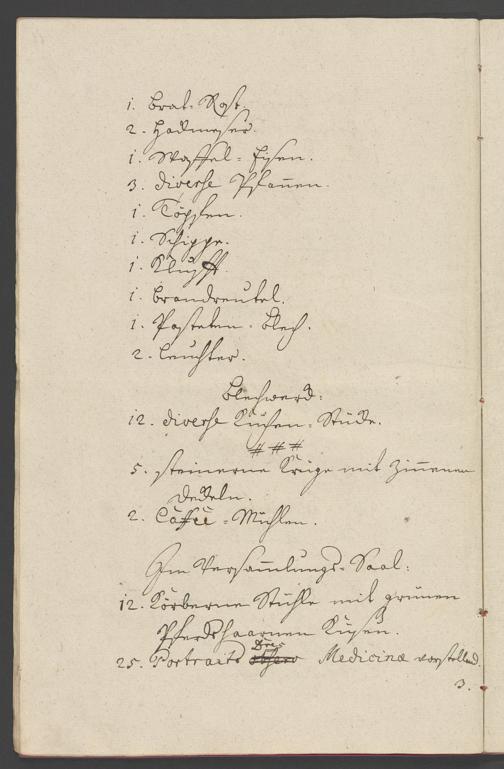 1. Brat-Rost.
2. Hackmesser.
1. Waffel-Eisen.
3. diverse Pfannen.
1. Töpflen.
1. Schippe.
1. Klufft.
1. Brandreutel.
1. Pasteten-Blech.
2. Leuchter.
Blechwerck:
12. diverse Kuchen-Stücke.
# # #
5. steinerne Krüge mit Zinnenen
Deckeln.
2. Caffee-Mühlen.
Im Versammlungs-Saal:
12. Körberne Stühle mit grünen
Pferdshaarnen Küsen.
25. Portraits Medicinæ vorstellend.
3.